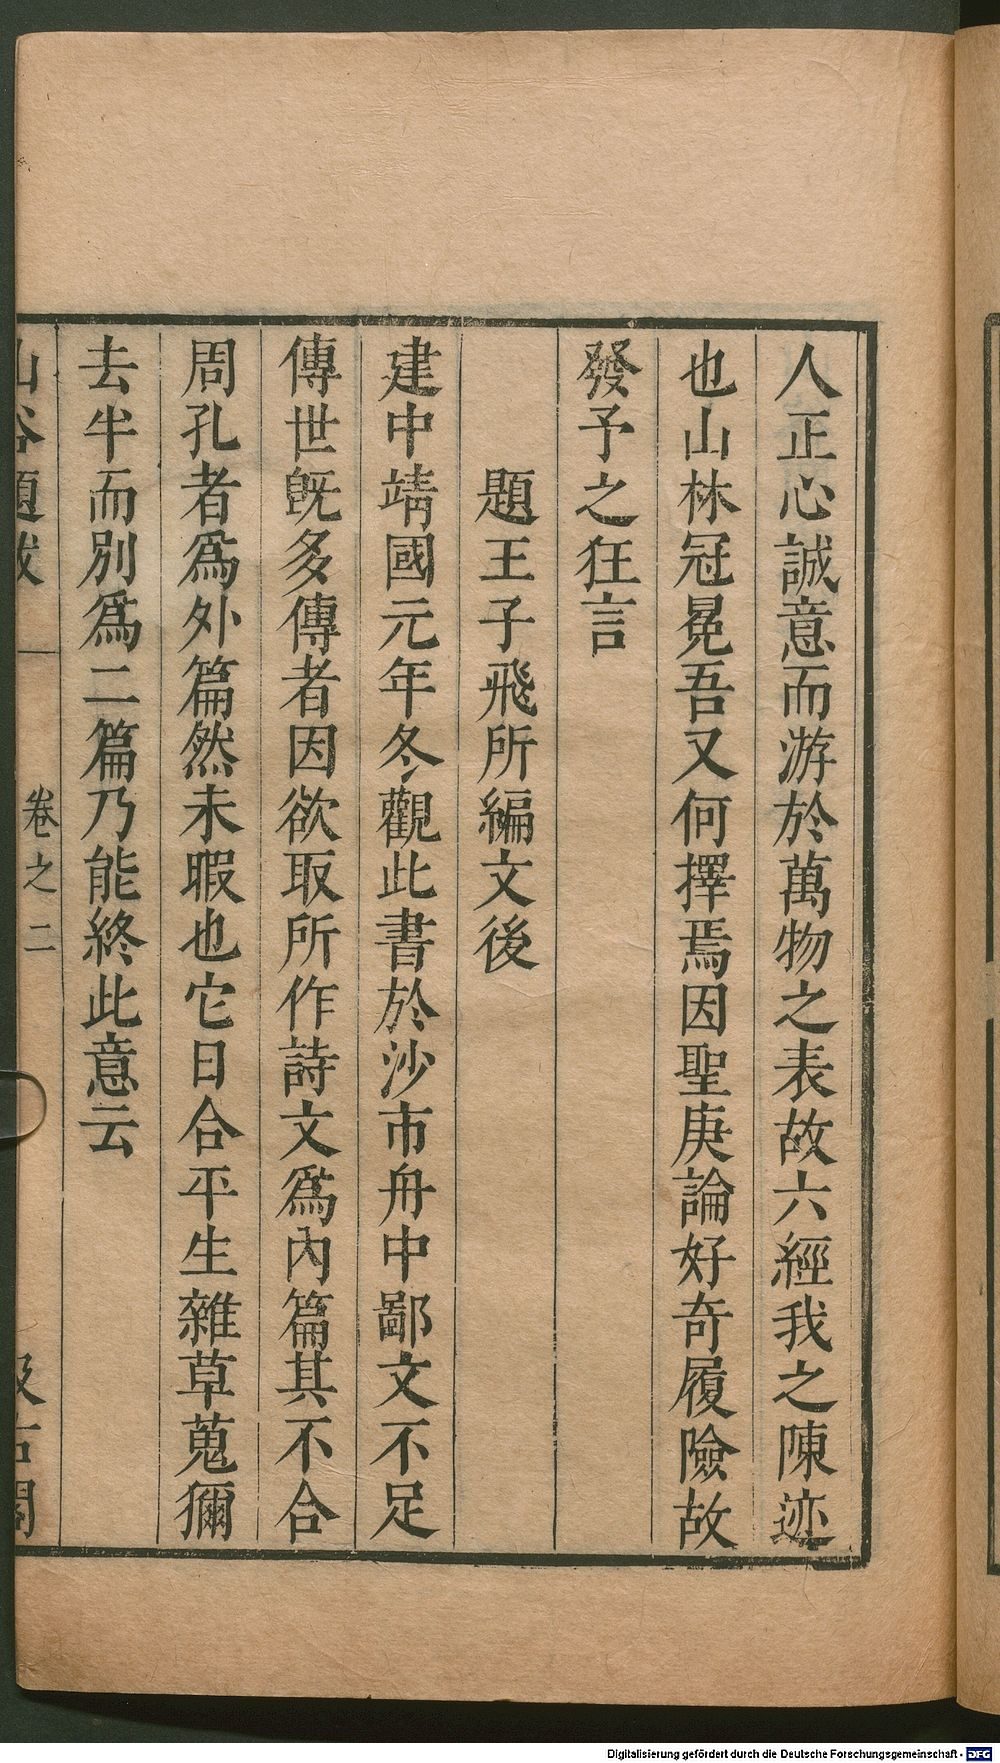 人正心誠意而游於萬物之表故六經我之陳迹
也山林冠冕吾又何擇焉因聖庚論好奇履險故
發予之狂言
題王子飛所編文後
建中靖國元年冬觀此書於沙市舟中鄙文不足
傳世旣多傳者因欲取所作詩文爲內篇其不合
周孔者爲外篇然未暇也它日合平生雜草蒐獮
去半而別爲二篇乃能終此意云
山谷題跋
卷之二
汲古閣
Digitalisierung gefördert durch die Deutsche Forschungsgemeinschaft - DFG